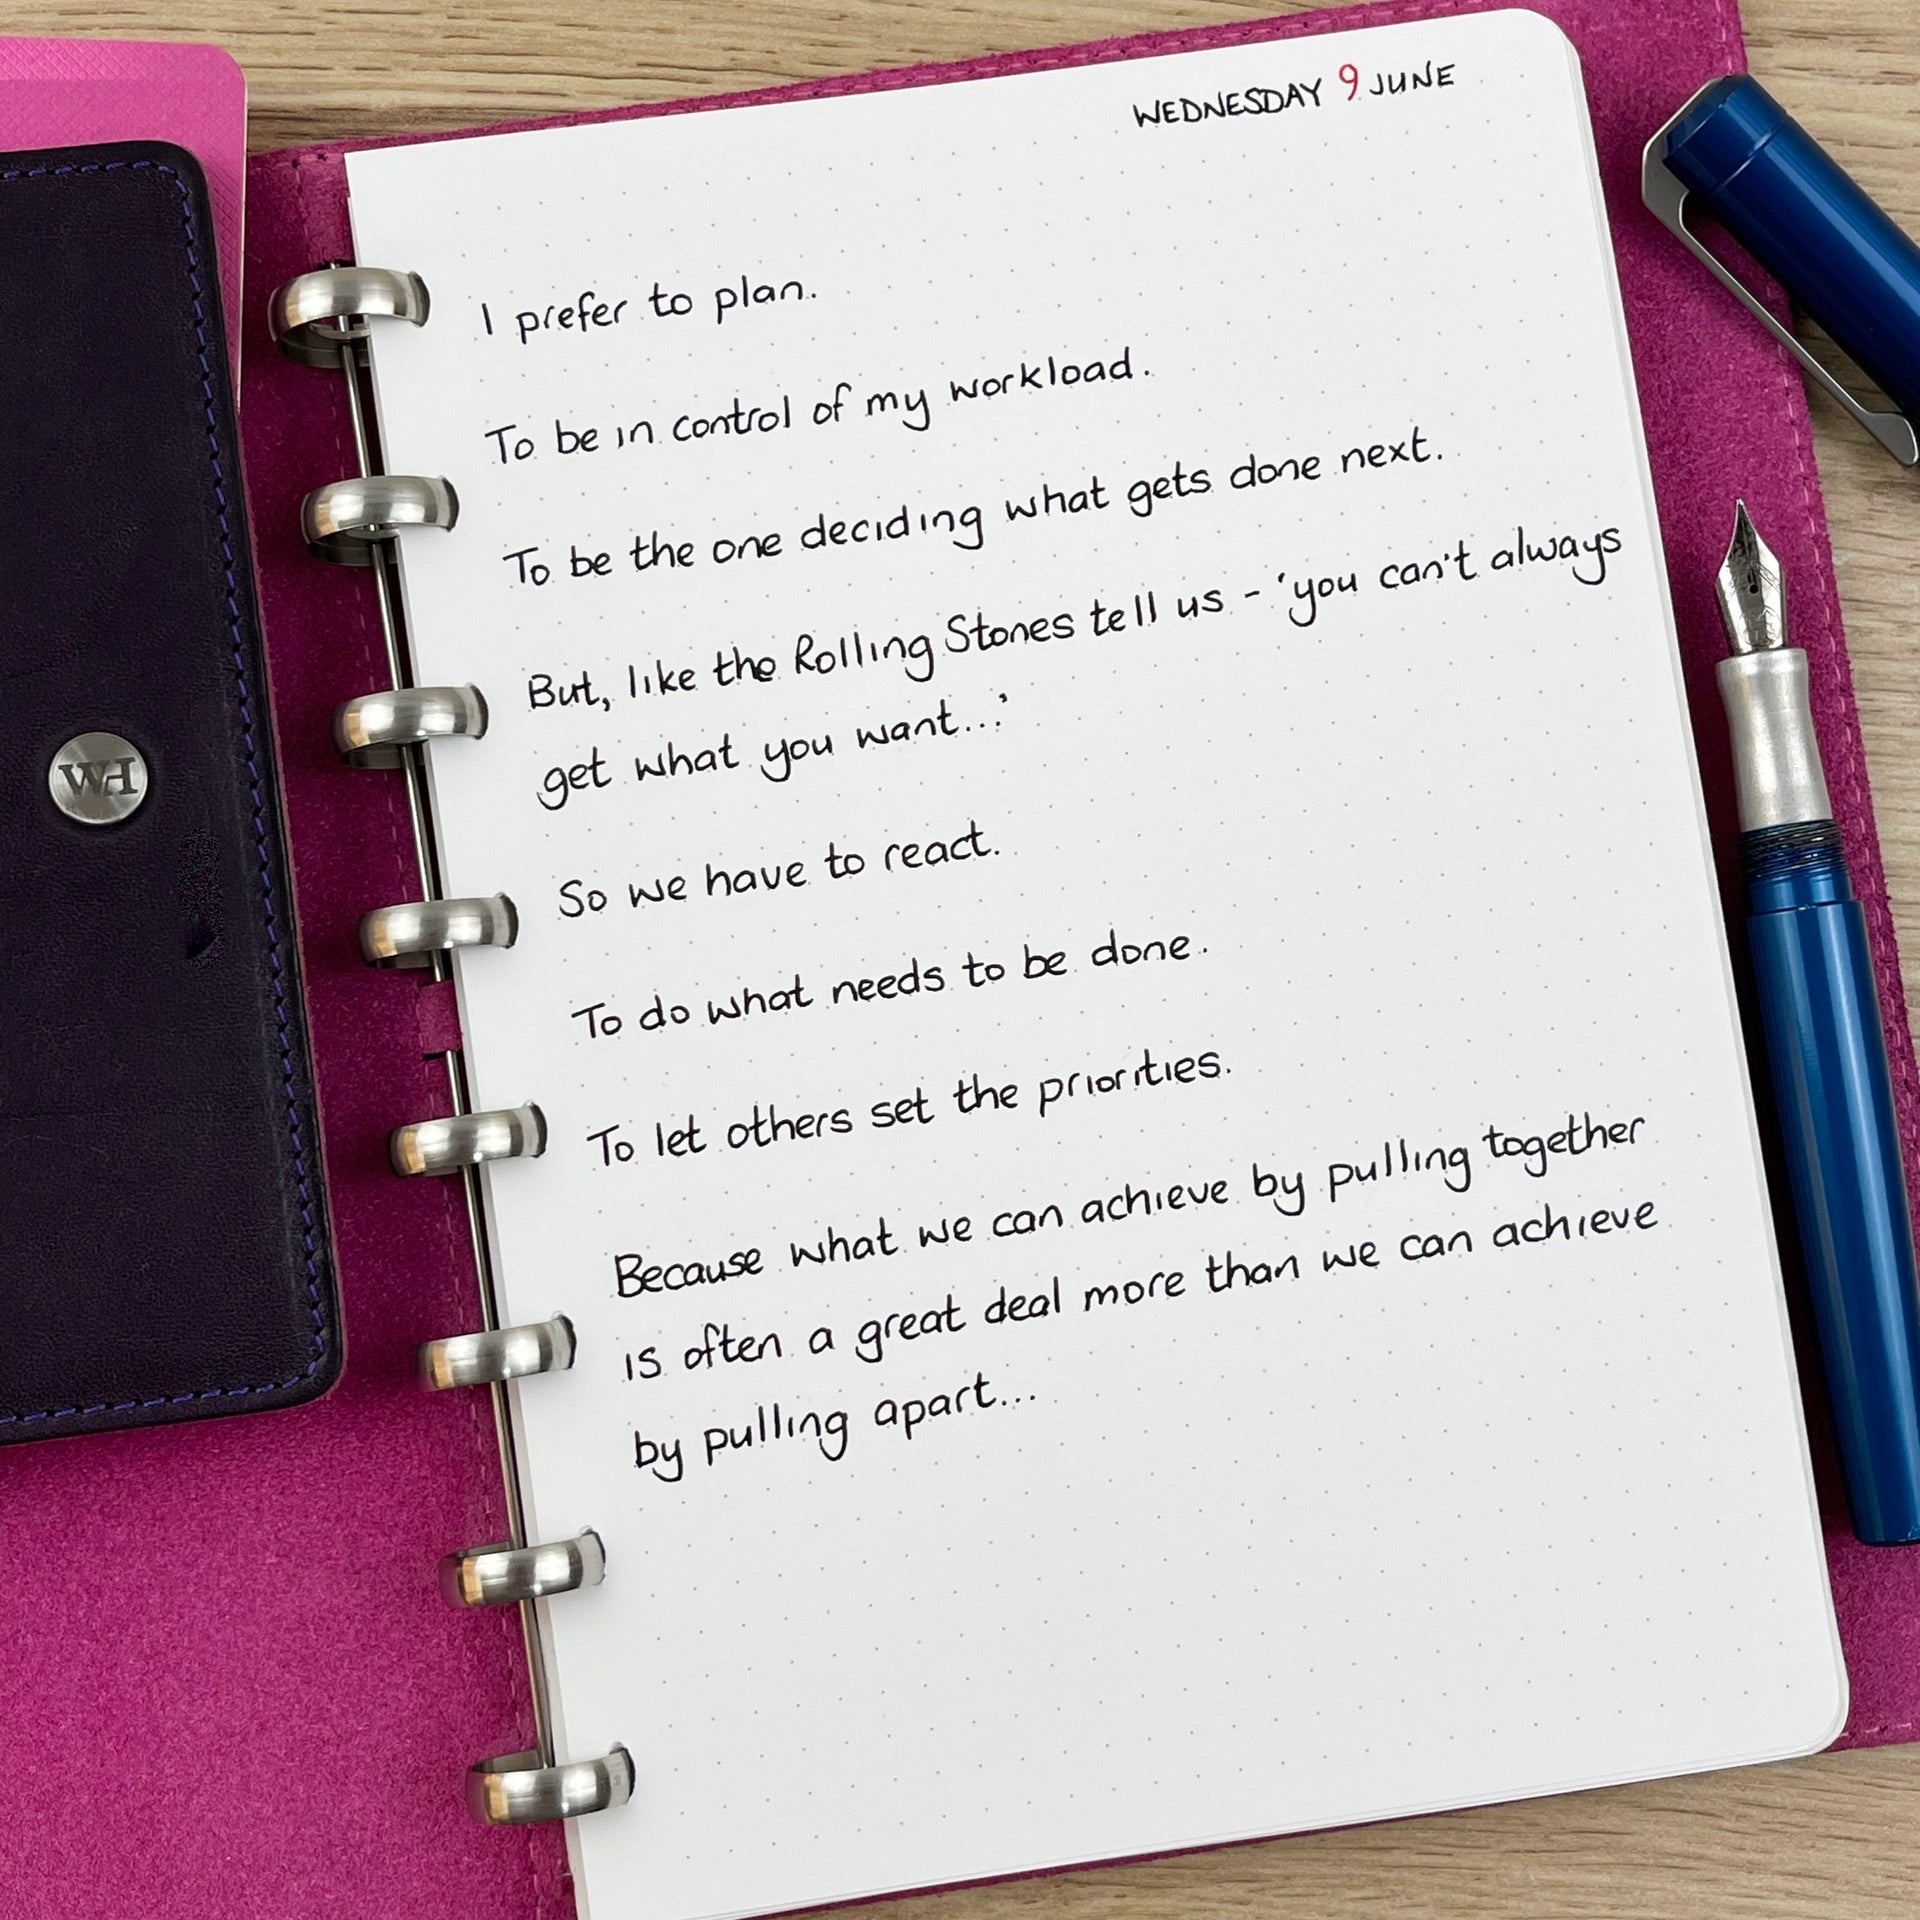 WEDNESDAY 9 JUNE
I prefer to plan.
To be in control of my workload.
To be the one deciding what gets done next.
But, like the Rolling Stones tell us - 'you can't always
get what you want...'
So we have to react.
To do what needs to be done.
To let others set the priorities.
Because what we can achieve by pulling together
is often a great deal more than we can achieve
by pulling apart...
WH